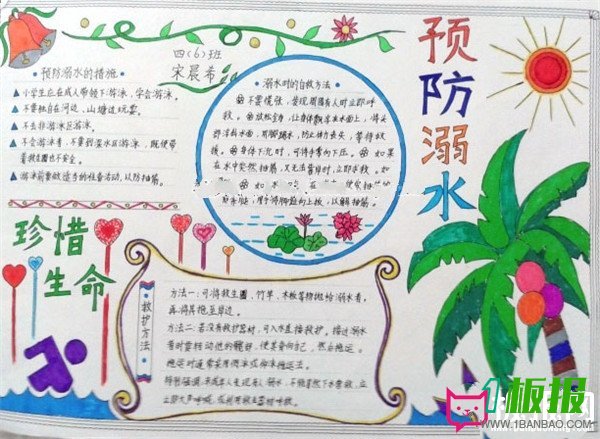 预防溺水
四(6)班
宋晨希
预防溺水的措施
小学生应在成人带领下游泳,学会游泳。
不要独自在河边、山塘边玩耍。
不去非游泳区游泳。
不会游泳者,不要到深水区游泳,既使带
着救生圈也不安全。
游泳前要做适当的准备活动,以防抽筋。
溺水时的自救方法:
不要慌张,发现周围有人时立即呼
救。放松全身,让身体飘浮在水面上,将头
部浮出水面,用脚踢水,防止体力丧失,等待救
援。身体下沉时,可将手掌向下压。如果
在水中突然抽筋,又无法靠岸时,立即求救。如
珍惜
生命
救护方法
方法一:可将救生圈、竹竿、木板等物抛给溺水者,
再将其拖至岸边。
方法二:若没有救护器材,可入水直接救护。接近溺水
者时要转动他的髋部,使其背向自己,然后拖运。
拖运时通常采用侧泳或仰泳拖运法。
特别强调:未成年人发现有人溺水,不能冒然下水营救,立
1板报
WWW.1BANBAO.COM